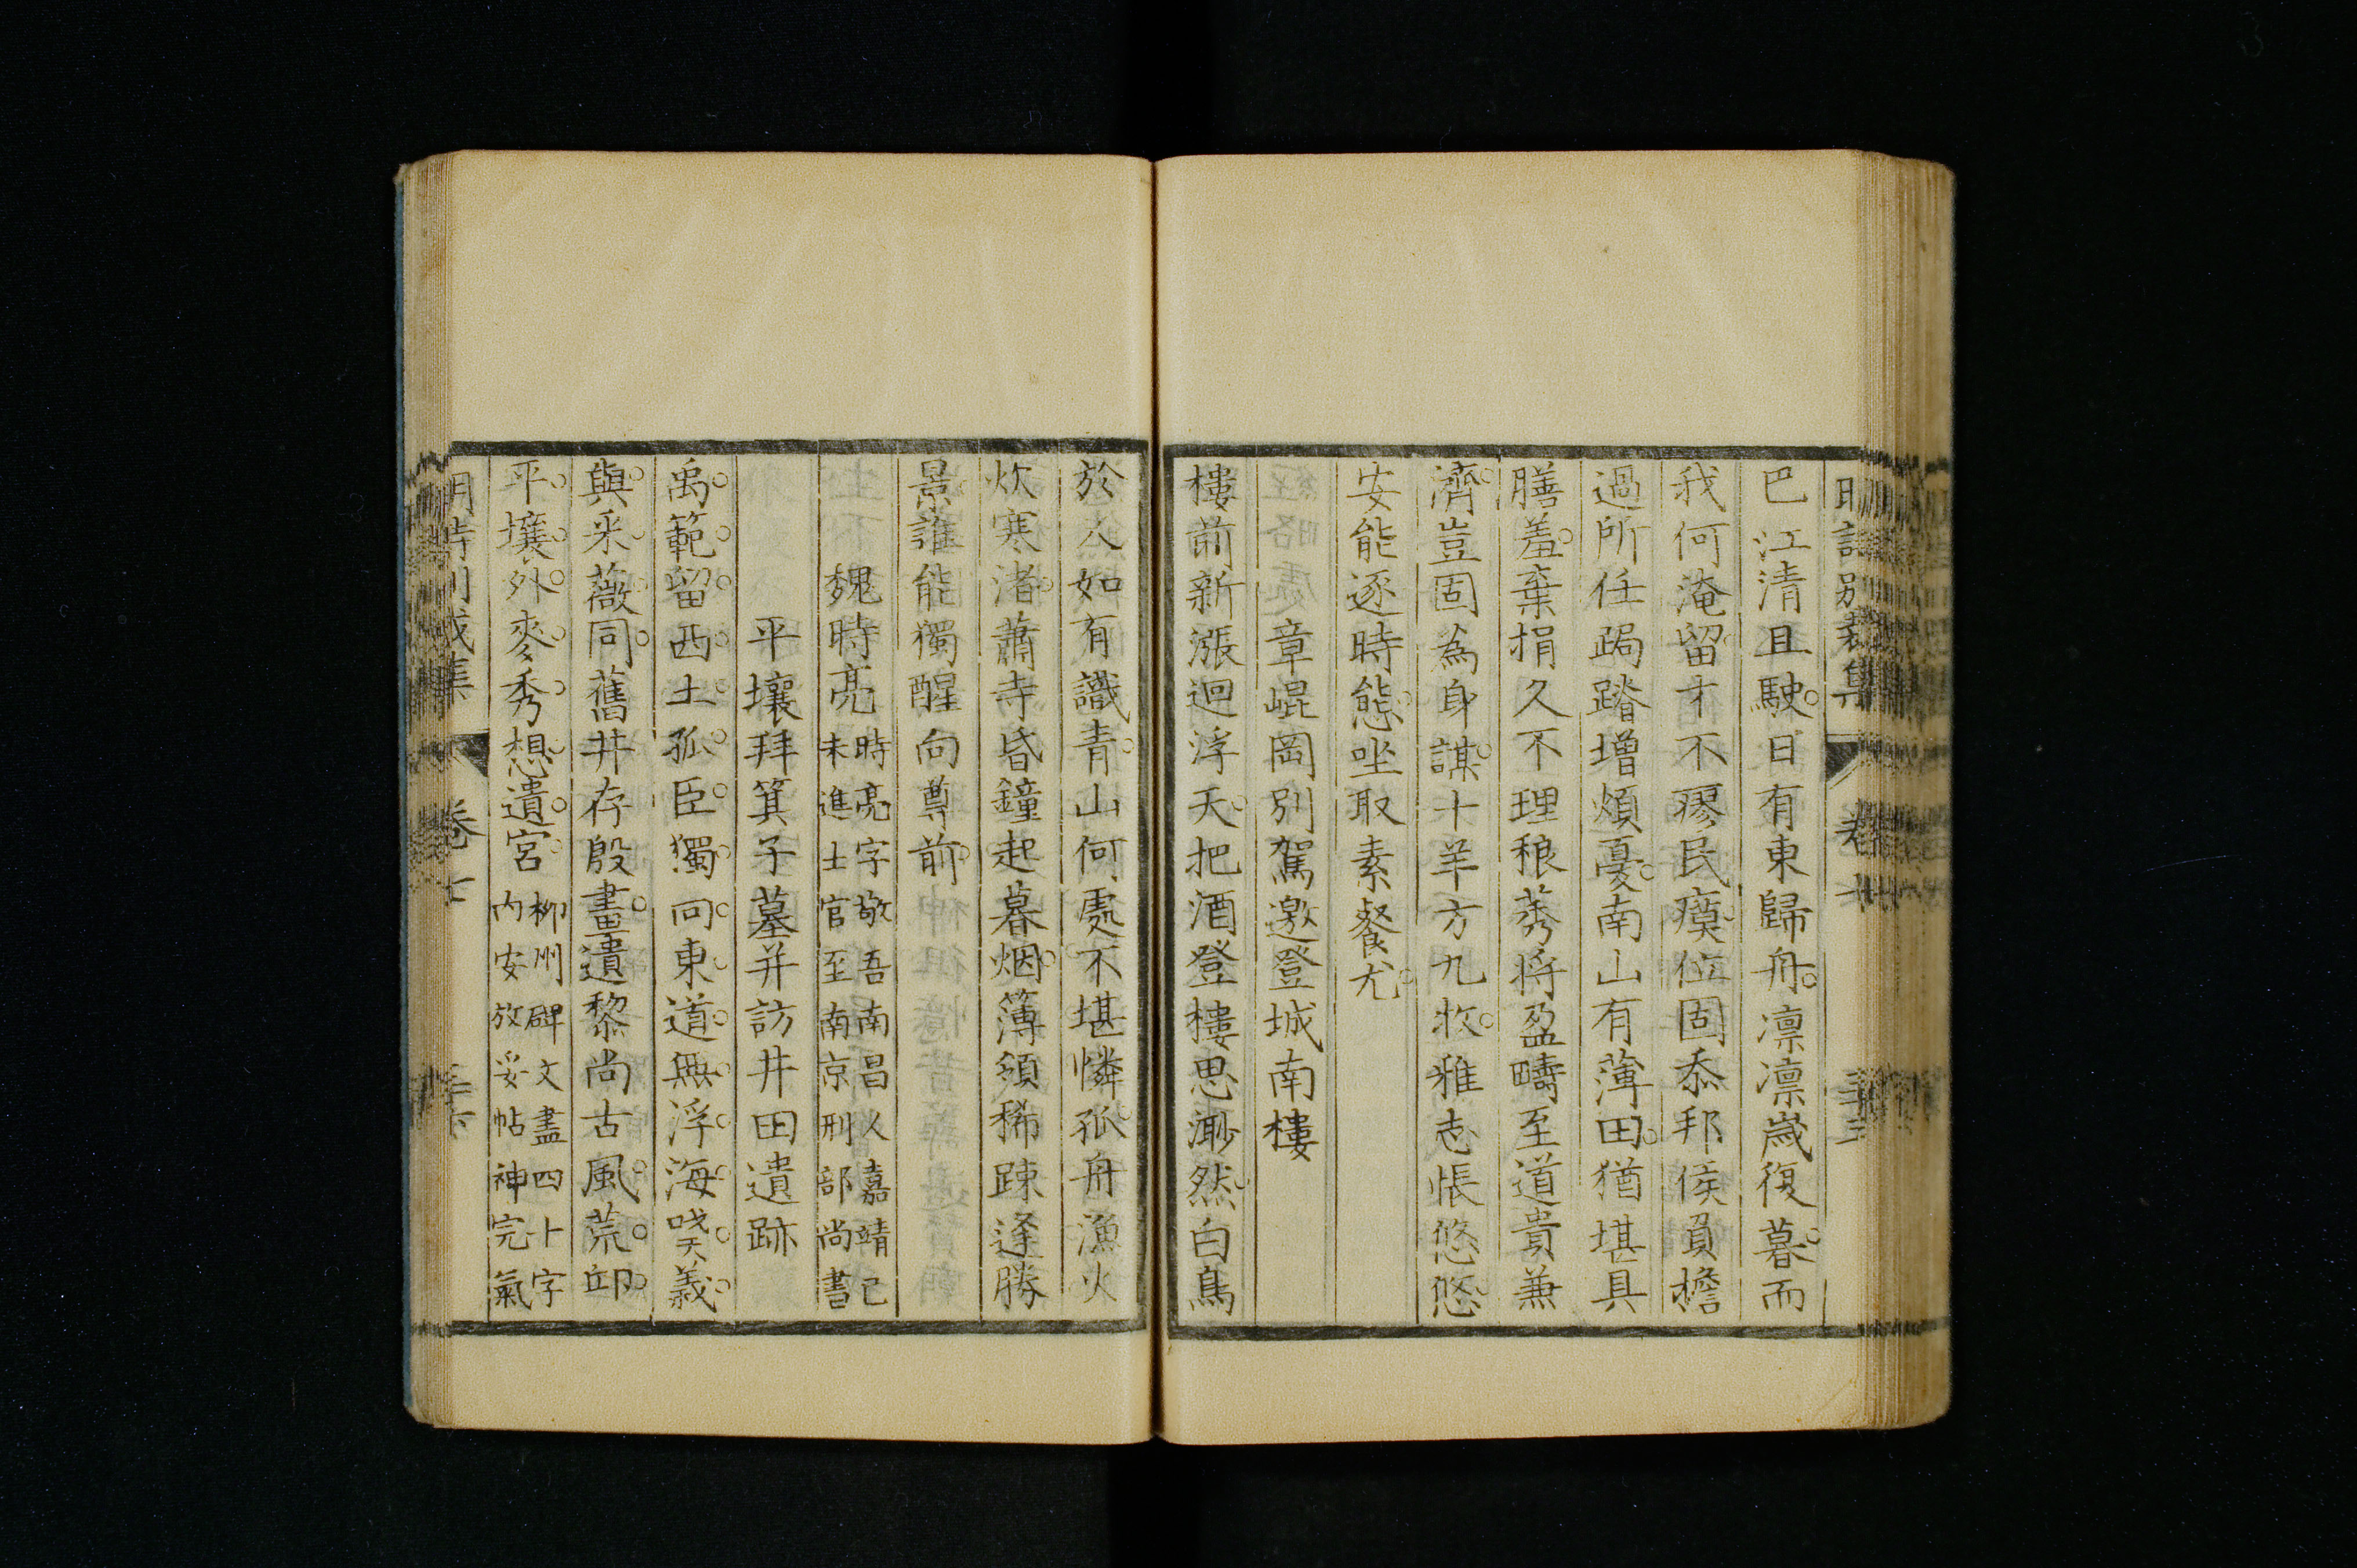 明詩別裁集 卷七
巴江清且駛日有東歸舟凛凛歳復暮而
我何淹留才不瘳民瘼位固忝邦侯負檐
過所任跼蹐增煩憂南山有薄田猶堪具
膳羞棄捐久不理稂莠將盈疇至道貴兼
濟豈固為身謀十羊方九牧雅志悵悠悠
安能逐時態坐取素餐尤
章崐岡別駕邀登城南樓
樓前新漲迴浮天把酒登樓思渺然白鳥
於人如有識青山何處不堪憐孤舟漁火
炊寒渚蕭寺昏鐘起暮烟簿領稀踈逢勝
景誰能獨醒向尊前
魏時亮 時亮字敬吾南昌人嘉靖己
未進士官至南京刑部尚書
平壤拜箕子墓并訪井田遺跡
禹範留西土孤臣獨向東道無浮海嘆義
與采薇同舊井存殷畫遺黎尚古風荒邱
平壤外麥秀想遺宮 柳州碑文盡四十字
内安放妥帖神完氣
明詩別裁集 卷七